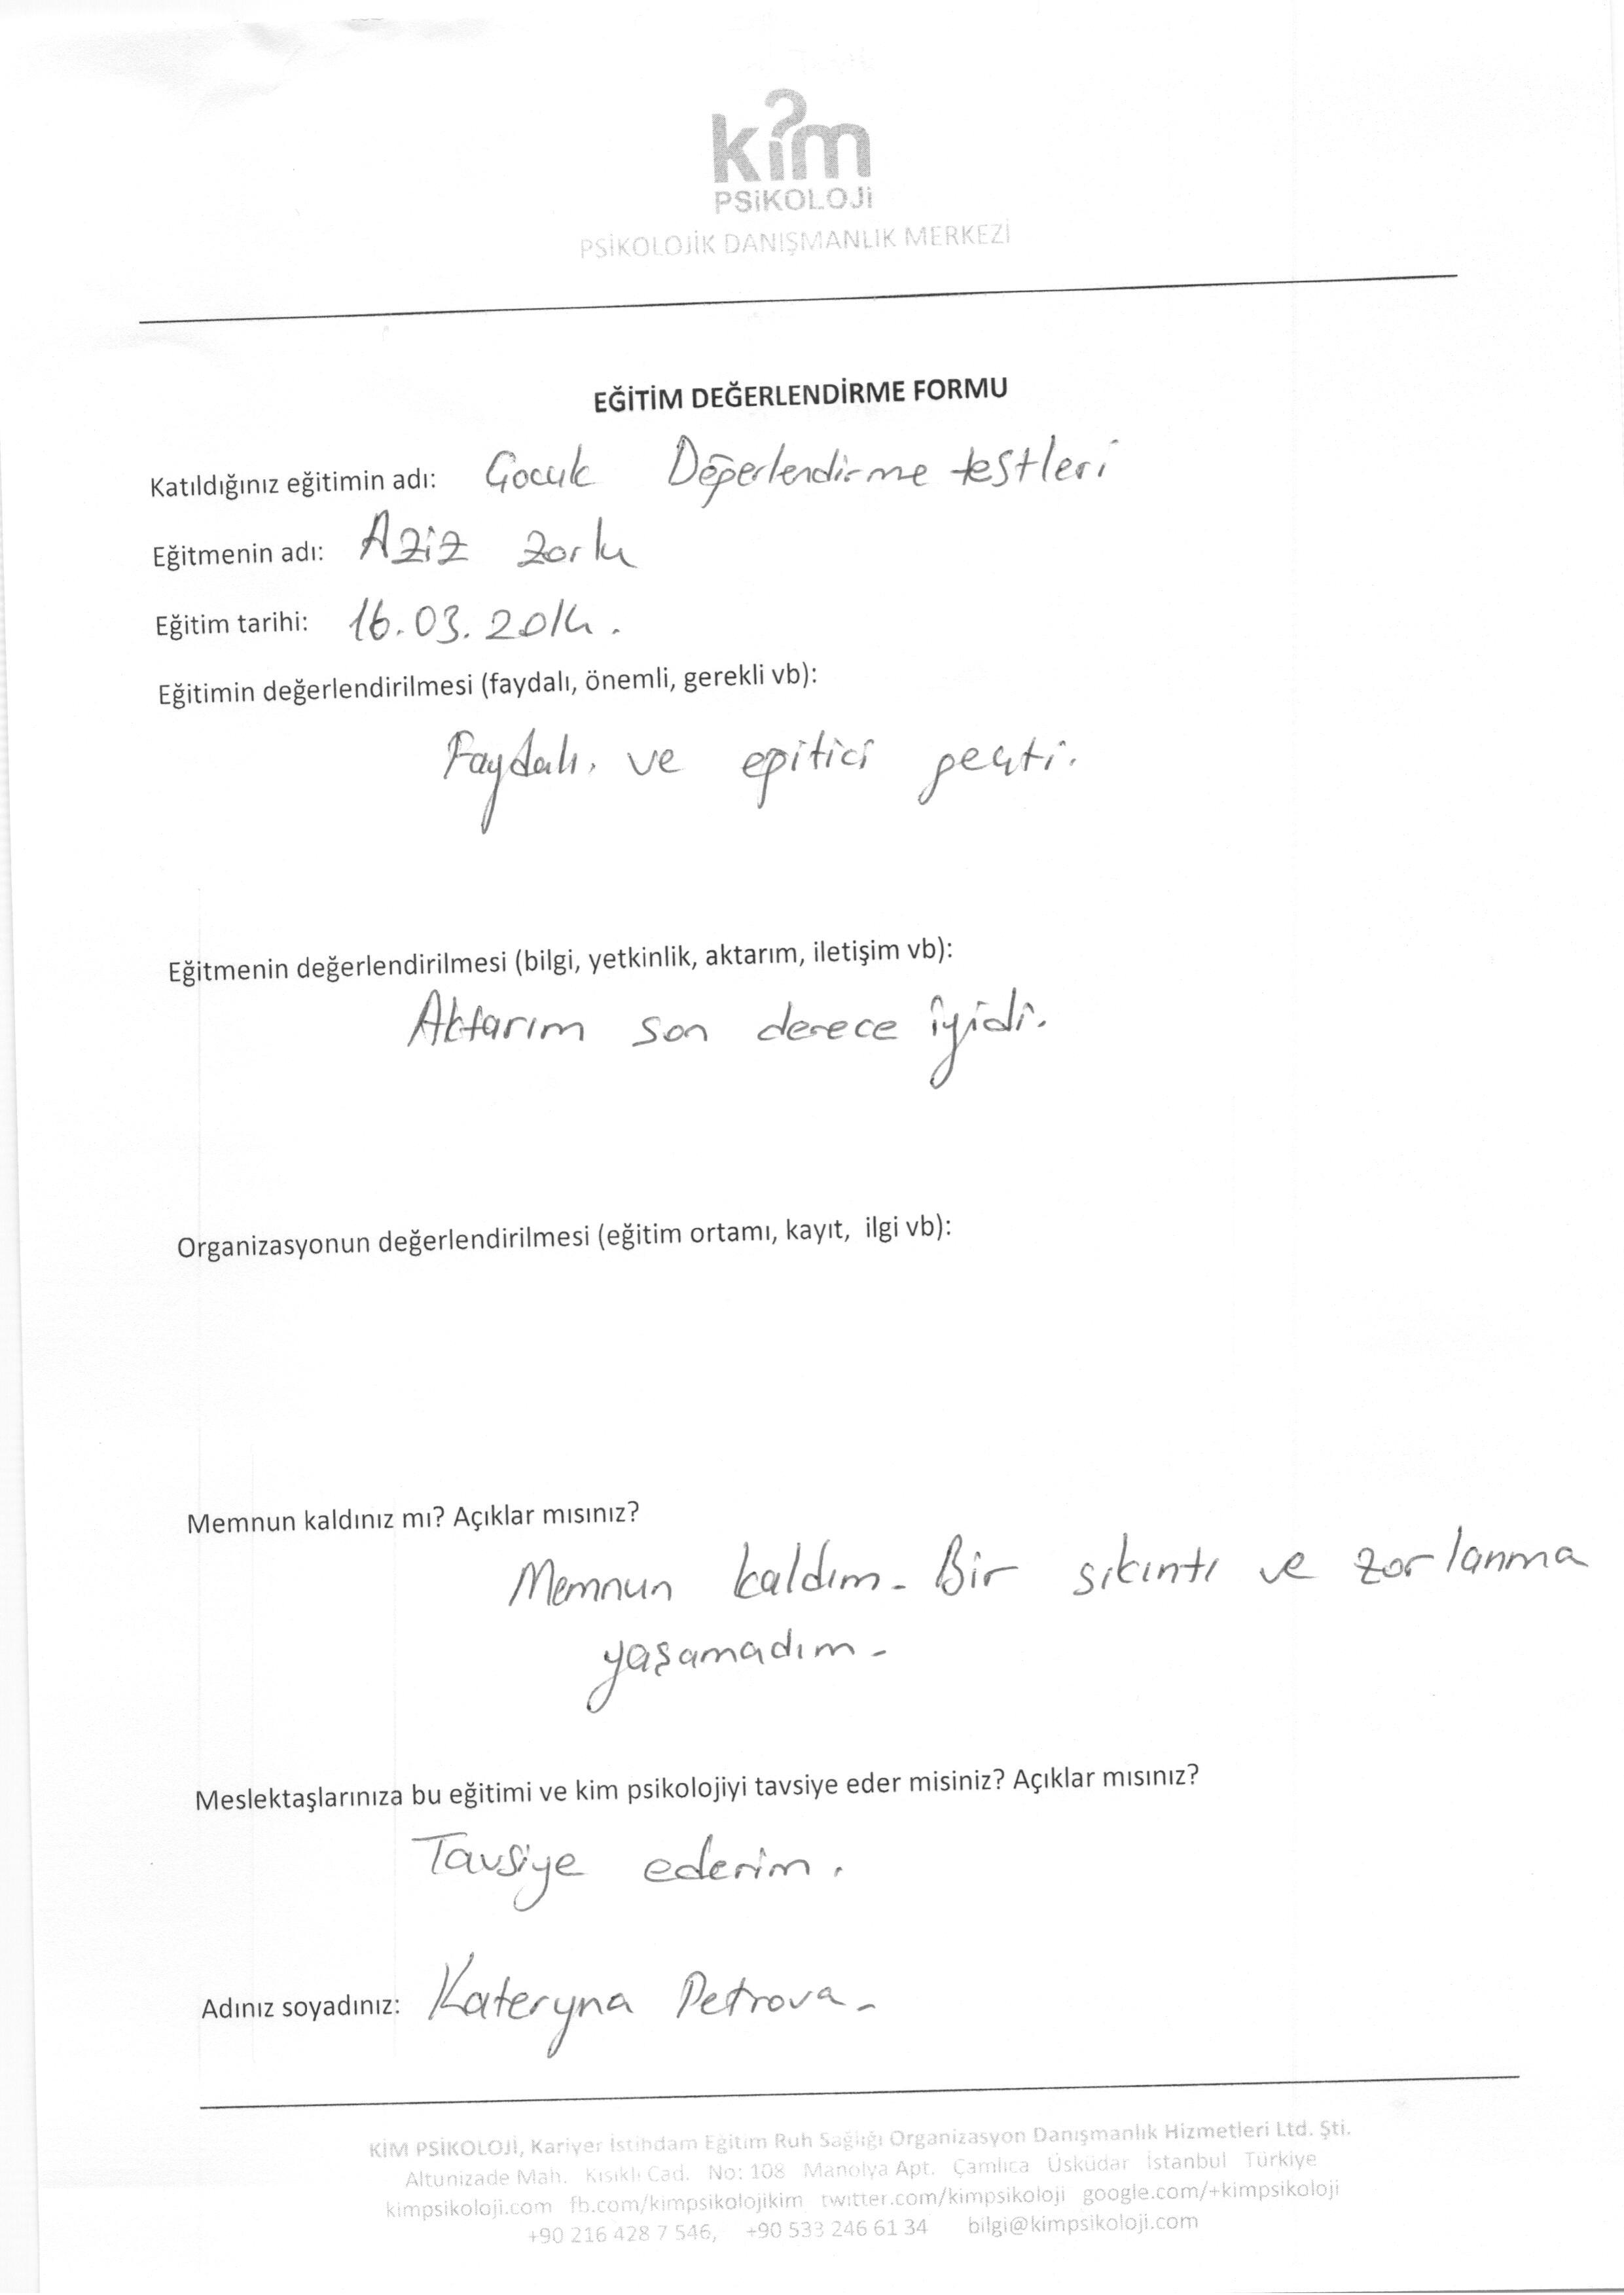 kim
PSiKOLOJi
PSİKOLOJİK DANIŞMANLIK MERKEZİ
EĞİTİM DEĞERLENDİRME FORMU
Katıldığınız eğitimin adı: Çocuk Değerlendirme testleri
Eğitmenin adı: Aziz Zorlu
Eğitim tarihi: 16.03.2014.
Eğitimin değerlendirilmesi (faydalı, önemli, gerekli vb):
Faydalı. ve eğitici geçti.
Eğitmenin değerlendirilmesi (bilgi, yetkinlik, aktarım, iletişim vb):
Aktarım son derece iyidi.
Organizasyonun değerlendirilmesi (eğitim ortamı, kayıt, ilgi vb):
Memnun kaldınız mı? Açıklar mısınız?
Memnun kaldım. Bir sıkıntı ve zorlanma
yaşamadım.
Meslektaşlarınıza bu eğitimi ve kim psikolojiyi tavsiye eder misiniz? Açıklar mısınız?
Tavsiye ederim.
Adınız soyadınız: Kateryna Petrova.
KİM PSİKOLOJİ, Kariyer İstihdam Eğitim Ruh Sağlığı Organizasyon Danışmanlık Hizmetleri Ltd. Şti.
Altunizade Mah. Kısıklı Cad. No: 108 Manolya Apt. Çamlıca Üsküdar İstanbul Türkiye
kimpsikoloji.com fb.com/kimpsikolojikim twitter.com/kimpsikoloji google.com/+kimpsikoloji
+90 216 428 7 546, +90 533 246 61 34 bilgi@kimpsikoloji.com